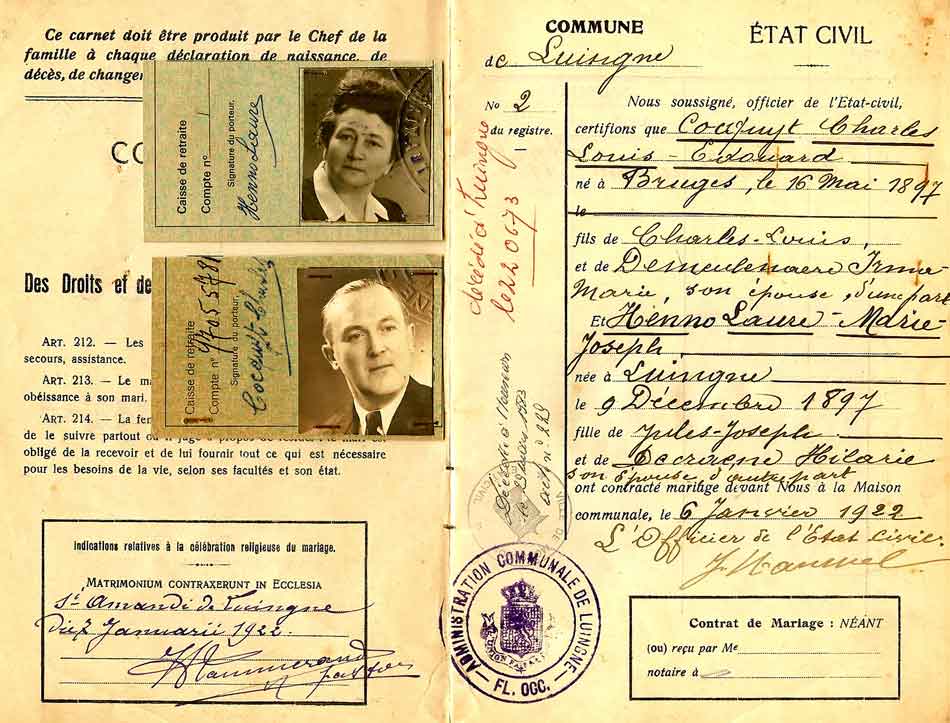 Ce carnet doit être produit par le Chef de la
famille à chaque déclaration de naissance, de
décès, de changem
Caisse de retraite
Compte n°
Signature du porteur,
Henno Laure
CO
Caisse de retraite
Compte n°
Signature du porteur,
Des Droits et de
ART. 212. — Les
secours, assistance.
ART. 213. — Le ma
obéissance à son mari.
ART. 214. — La fem
de le suivre partout où il juge à propos de
obligé de la recevoir et de lui fournir tout ce qui est nécessaire
pour les besoins de la vie, selon ses facultés et son état.
Indications relatives à la célébration religieuse du mariage.
MATRIMONIUM CONTRAXERUNT IN ECCLESIA
Sti Amandi de Luingne
Die 7 Januarii 1922.
pastor
COMMUNE
de Luingne
ÉTAT CIVIL
No 2
du registre.
décédé à Luingne
le 22 06 73
Nous soussigné, officier de l'Etat-civil,
certifions que Cocquyt Charles
Louis-Edouard
né à Bruges, le 16 Mai 1897
le
fils de Charles-Louis,
et de Demeulenaere Irma
Marie, son épouse, d'une part
Et Henno Laure-Marie-
Joseph
née à Luingne
le 9 Décembre 1897
fille de Jules-Joseph
et de Decraene Hilarie
son épouse d'autre part
ont contracté mariage devant Nous à la Maison
communale, le 6 Janvier 1922
L'Officier de l'Etat Civil.
ADMINISTRATION COMMUNALE DE LUINGNE
FL. OCC.
Contrat de Mariage : NÉANT
(ou) reçu par Me
notaire à